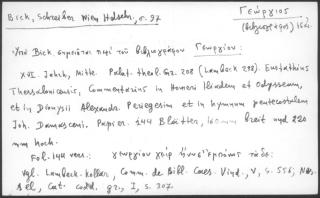 Bick, Schreiber Wien Hdschr, s. 97
Γεώργιος
(βιβλιογράφος) 16 c.
Ὑπὸ Bick σημειοῦται περὶ τοῦ βιβλιογράφου Γεωργίου:
XVI. Jahrh, Mitte. Palat. theol. Gr. 208 (Lambeck 298). Eustathius
Thessalonicensis, Commentarius in Homeri Iliadem et Odysseum,
et in Dionysii Alexandr. Periegesim et in hymnum pentecostalem
Joh. Damasceni. Papier. 244 Blätter, 160 mm breit und 220
mm hoch.
Fol. 144 vers.: γεωργίου χεὶρ τάδε:
Vgl. Lambeck-Kollar, Comm. de Bibl. Caes. Vind., V, s. 556; Nes-
sel, Cat. codd. gr., I, s. 307.